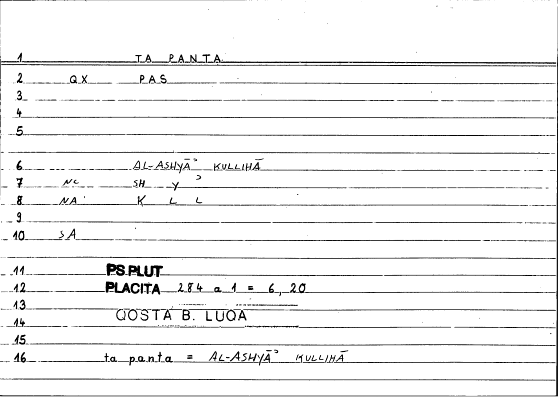 1 TA PANTA
2 QX PAS
3
4
5
6 AL-ASHYĀʾ KULLIHĀ
7 NC SH Y ʾ
8 NA K L L
9
10 SA
11 PS.PLUT
12 PLACITA 284 a 1 = 6, 20
13
QOSTA B. LUQA
14
15
16 ta panta = AL-ASHYĀʾ KULLIHĀ